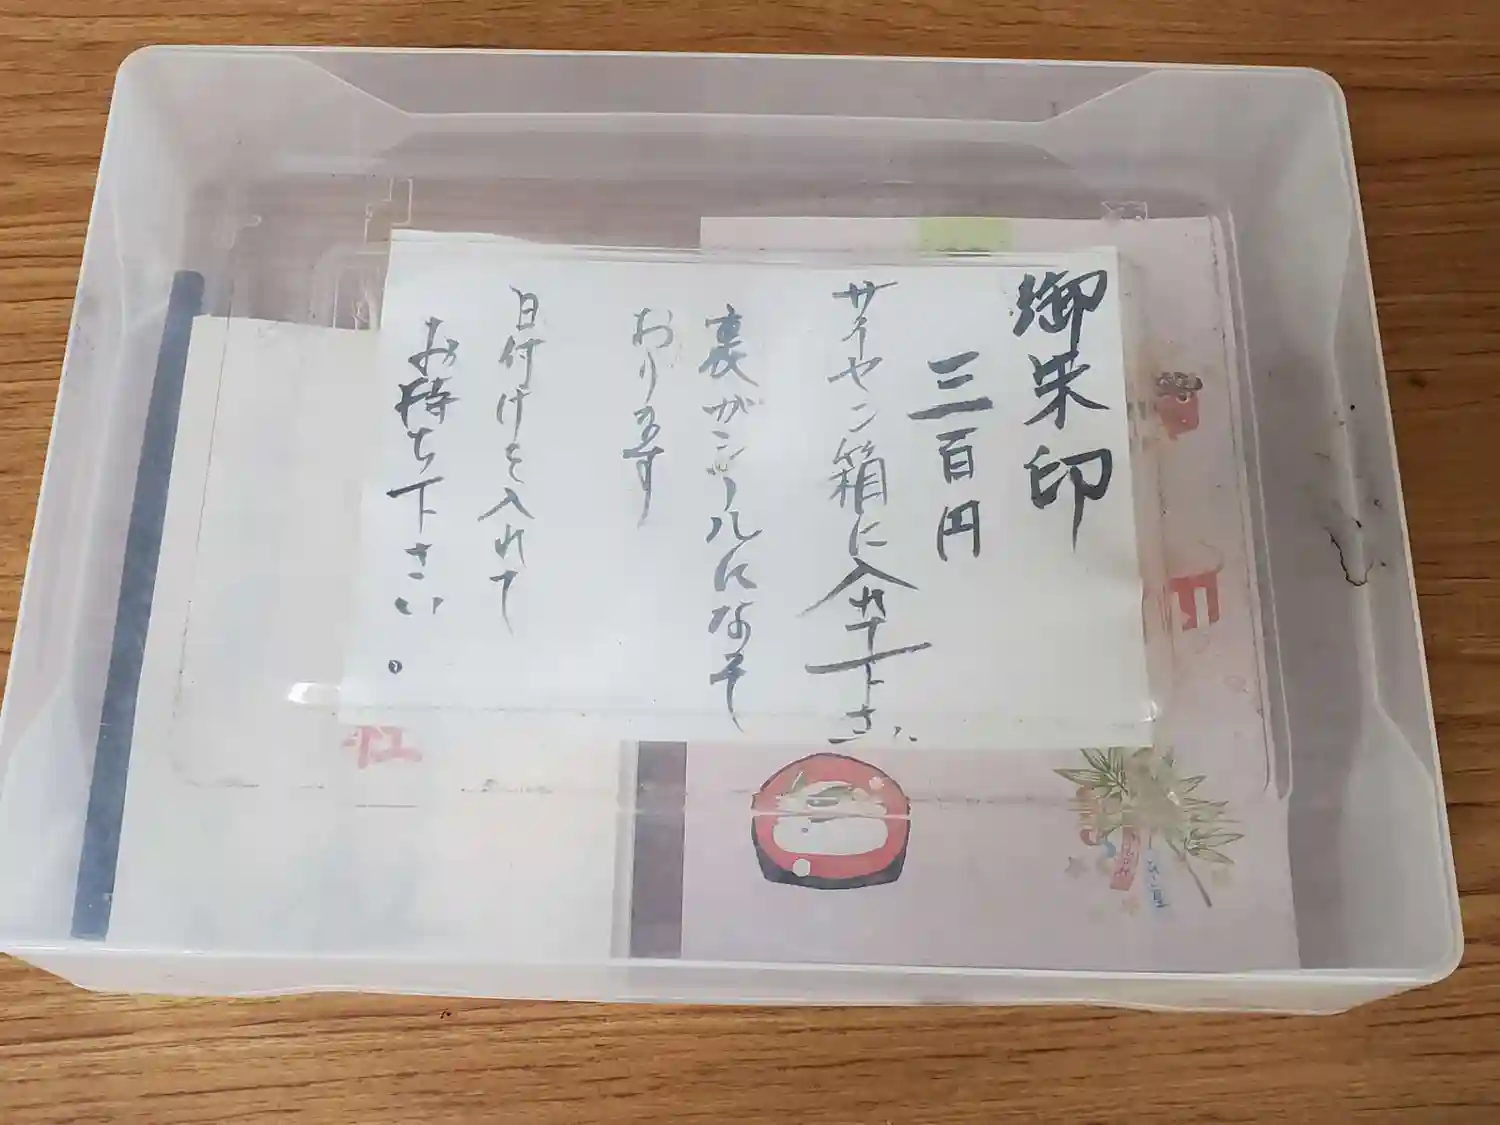 御朱印
三百円
サイセン箱に入れて下さい
裏がシールになって
おります
日付けを入れて
お持ち下さい。
社
ひこ星